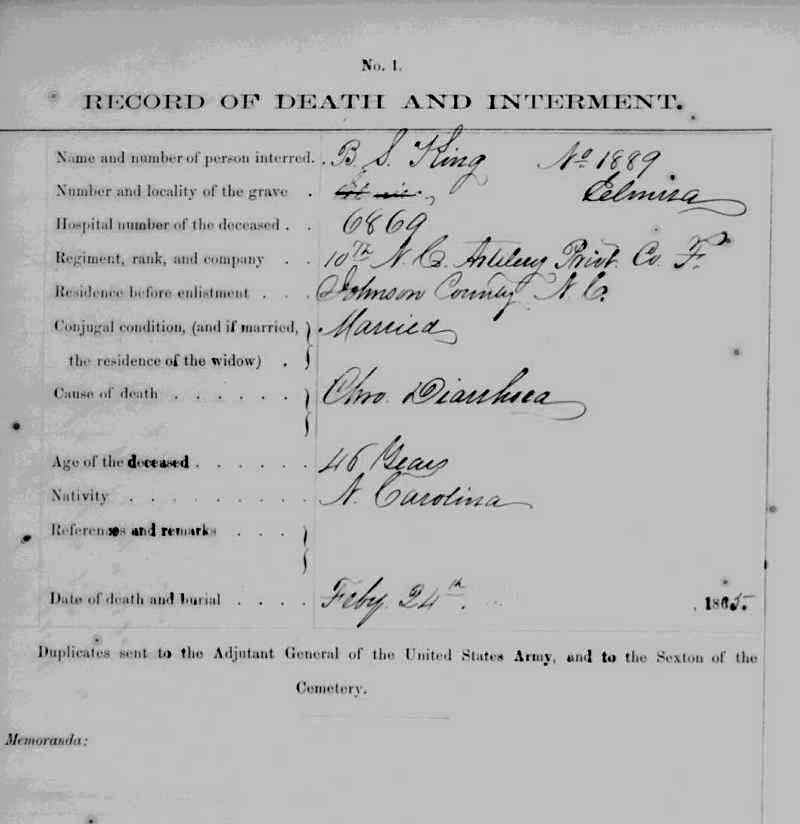 No. 1.
RECORD OF DEATH AND INTERMENT.
Name and number of person interred. . B. S. King No 1889
Number and locality of the grave . Elmira
Hospital number of the deceased . . 6869
Regiment, rank, and company . . 10th N. C. Artillery Privt. Co. F.
Residence before enlistment . . . Johnson County N. C.
Conjugal condition, (and if married, Married
the residence of the widow) .
Cause of death . . . . . . Chro. Diarrhoea
Age of the deceased . . . . . . 46 Years
Nativity . . . . . . . . . N. Carolina
References and remarks . . . .
Date of death and burial . . . . Feby. 24th. , 1865.
Duplicates sent to the Adjutant General of the United States Army, and to the Sexton of the
Cemetery.
Memoranda: